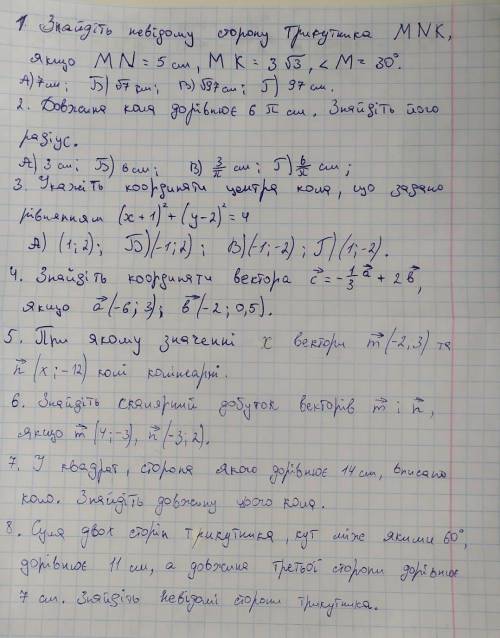 1. Знайдіть невідому сторону трикутника MNK,
якщо MN = 5 см, MK = 3√3, < M = 30°.
А) 7 см; Б) √7 см; В) √97 см; Г) 97 см.
2. Довжина кола дорівнює 6 π см. Знайдіть його
радіус.
А) 3 см; Б) 6 см; В) 3/π см; Г) 6/π см;
3. Укажіть координати центра кола, що задано
рівнянням (x+1)²+(y-2)²=4
А) (1; 2); Б) (-1; 2); В) (-1; -2); Г) (1; -2).
4. Знайдіть координати вектора c⃗ = -1/3 a⃗ + 2 b⃗,
якщо a⃗ (-6; 3); b⃗ (-2; 0,5).
5. При якому значенні x вектори m⃗ (-2; 3) та
n⃗ (x; -12) колінеарні.
6. Знайдіть скалярний добуток векторів m⃗ і n⃗,
якщо m⃗ (4; -3), n⃗ (-3; 2).
7. У квадрат, сторона якого дорівнює 14 см, вписано
коло. Знайдіть довжину цього кола.
8. Сума двох сторін трикутника, кут між якими 60°,
дорівнює 11 см, а довжина третьої сторони дорівнює
7 см. Знайдіть невідомі сторони трикутника.